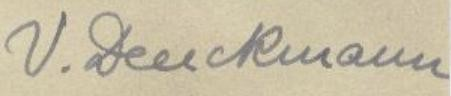 V. Denckmann